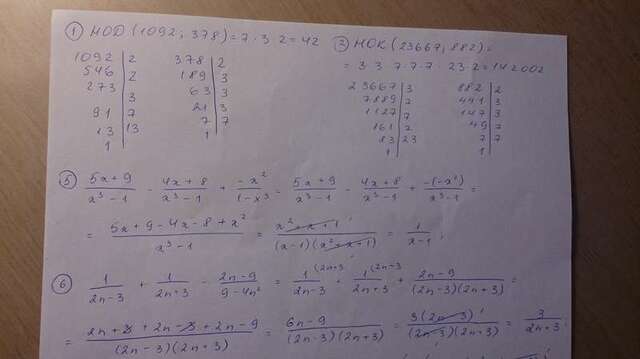 ① НОД (1092; 378) = 7 · 3 · 2 = 42
② НОК (23667; 882) =
= 3 · 3 · 7 · 7 · 7 · 23 · 2 = 142002
1092 | 2
546 | 2
273 | 3
91 | 7
13 | 13
1
378 | 2
189 | 3
63 | 3
21 | 3
7 | 7
1
23667 | 3
7889 | 7
1127 | 7
161 | 7
23 | 23
1
882 | 2
441 | 3
147 | 3
49 | 7
7 | 7
1
⑤ (5x+9)/(x³-1) - (4x+8)/(x³-1) + (-x²)/(1-x³) = (5x+9)/(x³-1) - (4x+8)/(x³-1) + (-(-x²))/(x³-1) =
= (5x+9-4x-8+x²)/(x³-1) = (x²+x+1)/((x-1)(x²+x+1)) = 1/(x-1)
⑥ 1/(2n-3) + 1/(2n+3) - (2n-9)/(9-4n²) = 1/(2n-3) (2n+3 + 1/(2n+3) (2n-3 + (2n-9)/((2n-3)(2n+3)) =
= (2n+3+2n-3+2n-9)/((2n-3)(2n+3)) = (6n-9)/((2n-3)(2n+3)) = 3(2n-3)/((2n-3)(2n+3)) = 3/(2n+3)